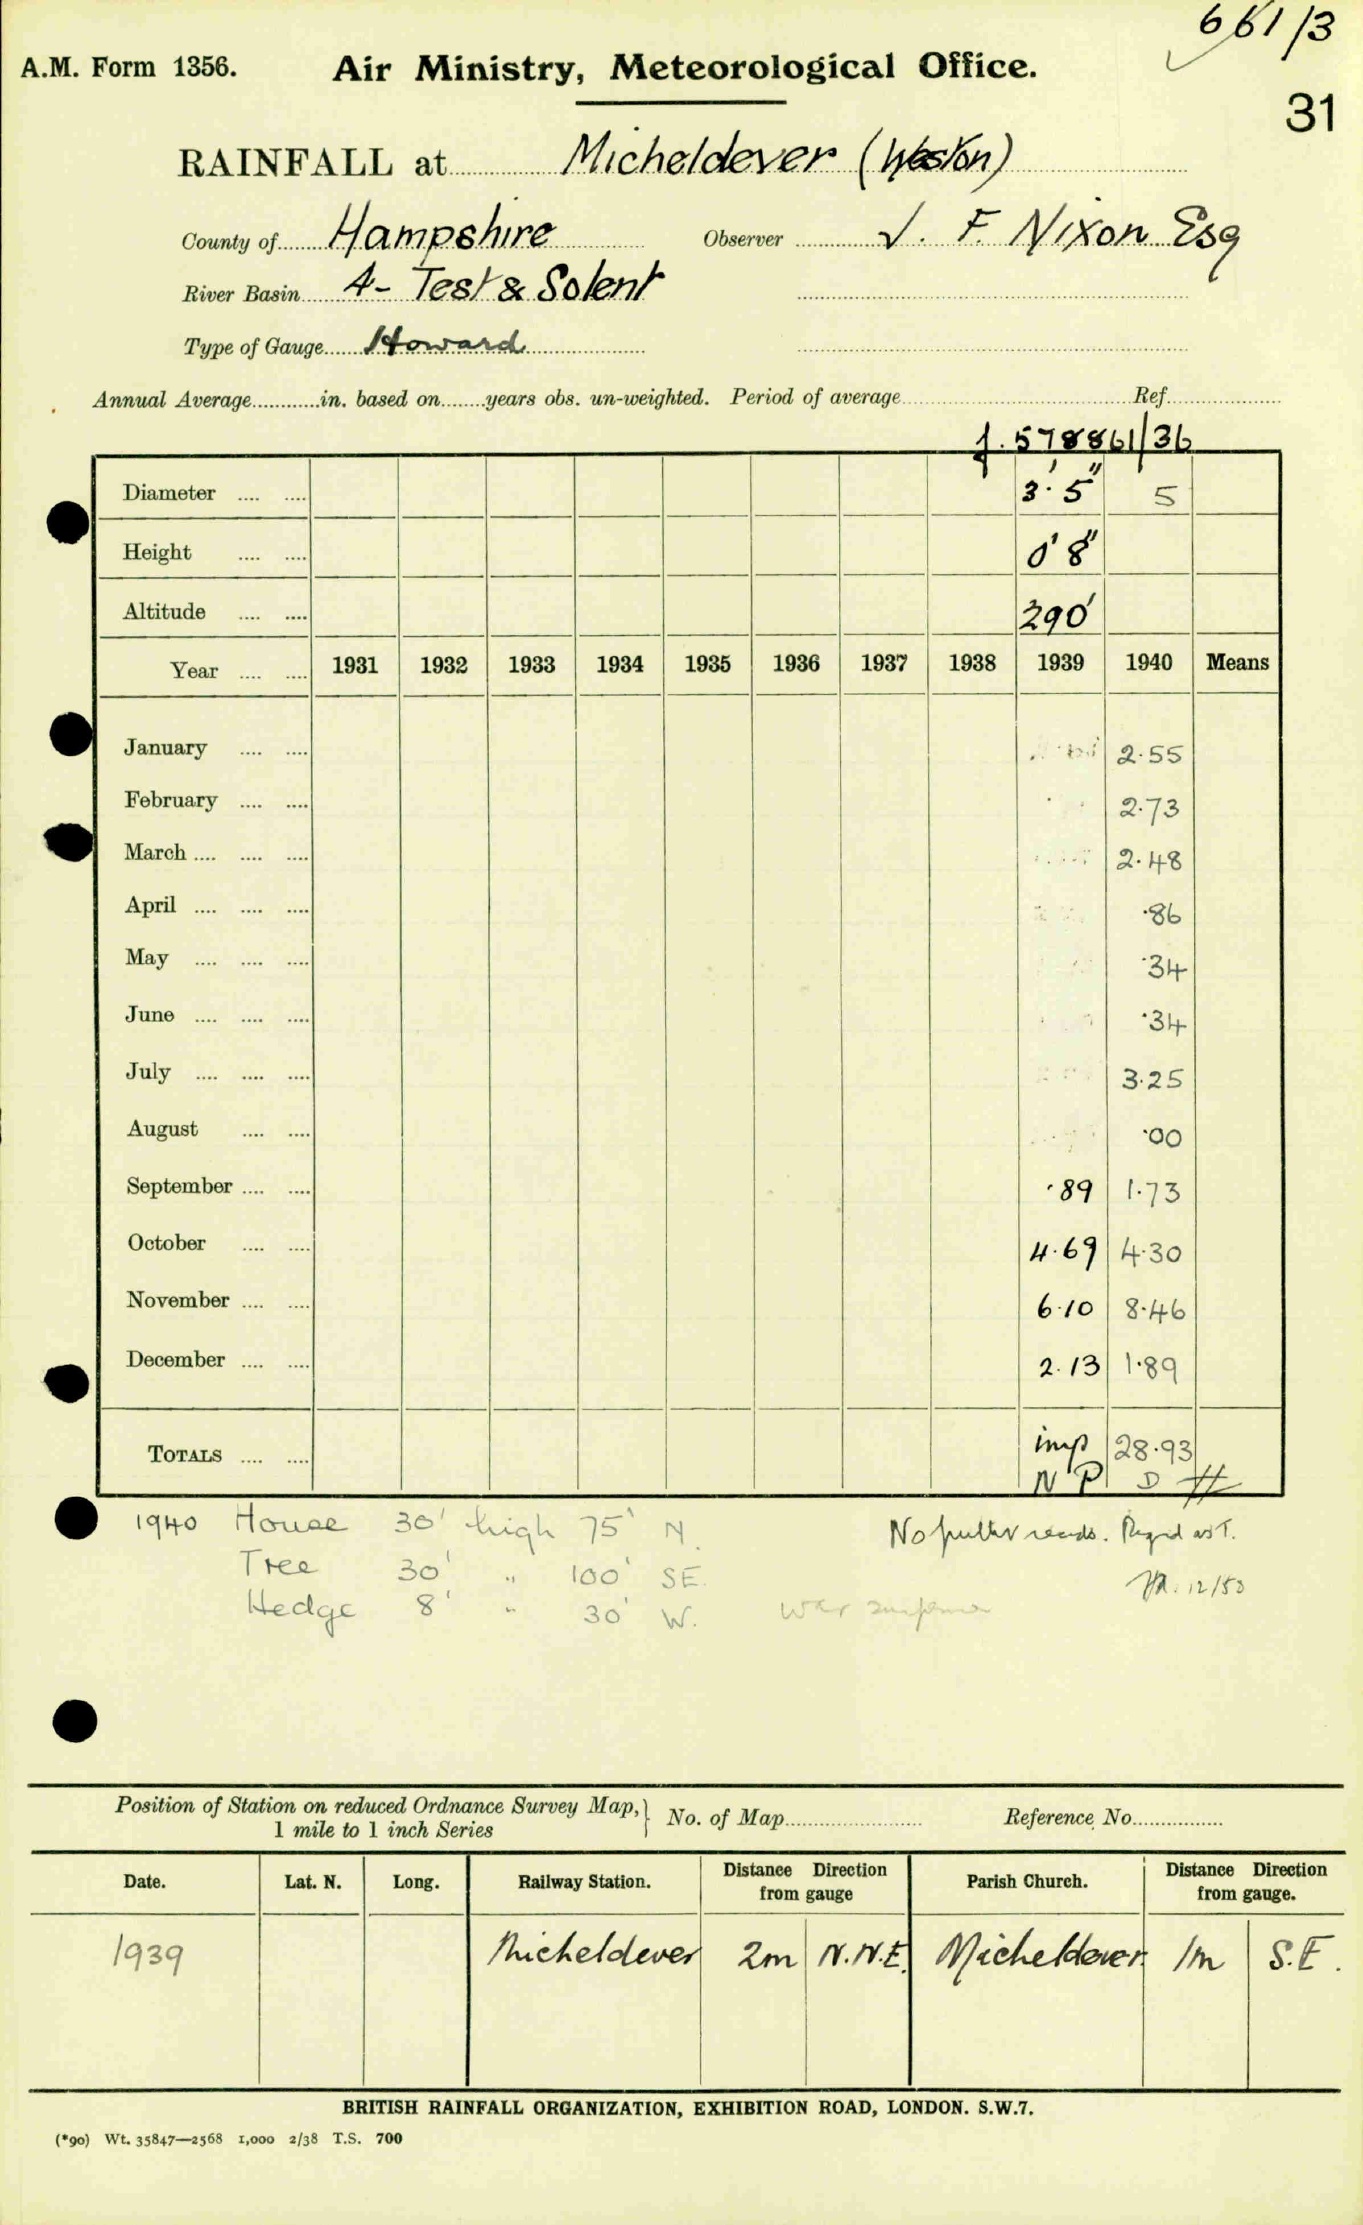 661/3
A.M. Form 1356. Air Ministry, Meteorological Office.
31
RAINFALL at Micheldever (Weston)
County of Hampshire Observer J. F. Nixon Esq
River Basin 4- Test & Solent
Type of Gauge Howard
Annual Average in. based on years obs. un-weighted. Period of average Ref.
f. 578861/36
Diameter 3' 5" 5
Height 0' 8"
Altitude 290'
Year 1931 1932 1933 1934 1935 1936 1937 1938 1939 1940 Means
January 2.55
February 2.73
March 2.48
April .86
May .34
June .34
July 3.25
August .00
September .89 1.73
October 4.69 4.30
November 6.10 8.46
December 2.13 1.89
TOTALS imp 28.93
N P D #
1940 House 30' high 75' N. No further reads. Regd as T.
Tree 30' " 100' SE. 12/53
Hedge 8' " 30' W. War
Position of Station on reduced Ordnance Survey Map, No. of Map Reference No.
1 mile to 1 inch Series
Date. Lat. N. Long. Railway Station. Distance Direction from gauge Parish Church. Distance Direction from gauge.
1939 Micheldever 2m N.N.E. Micheldever 1m S.E.
BRITISH RAINFALL ORGANIZATION, EXHIBITION ROAD, LONDON. S.W.7.
(*90) Wt. 35847—2568 1,000 2/38 T.S. 700